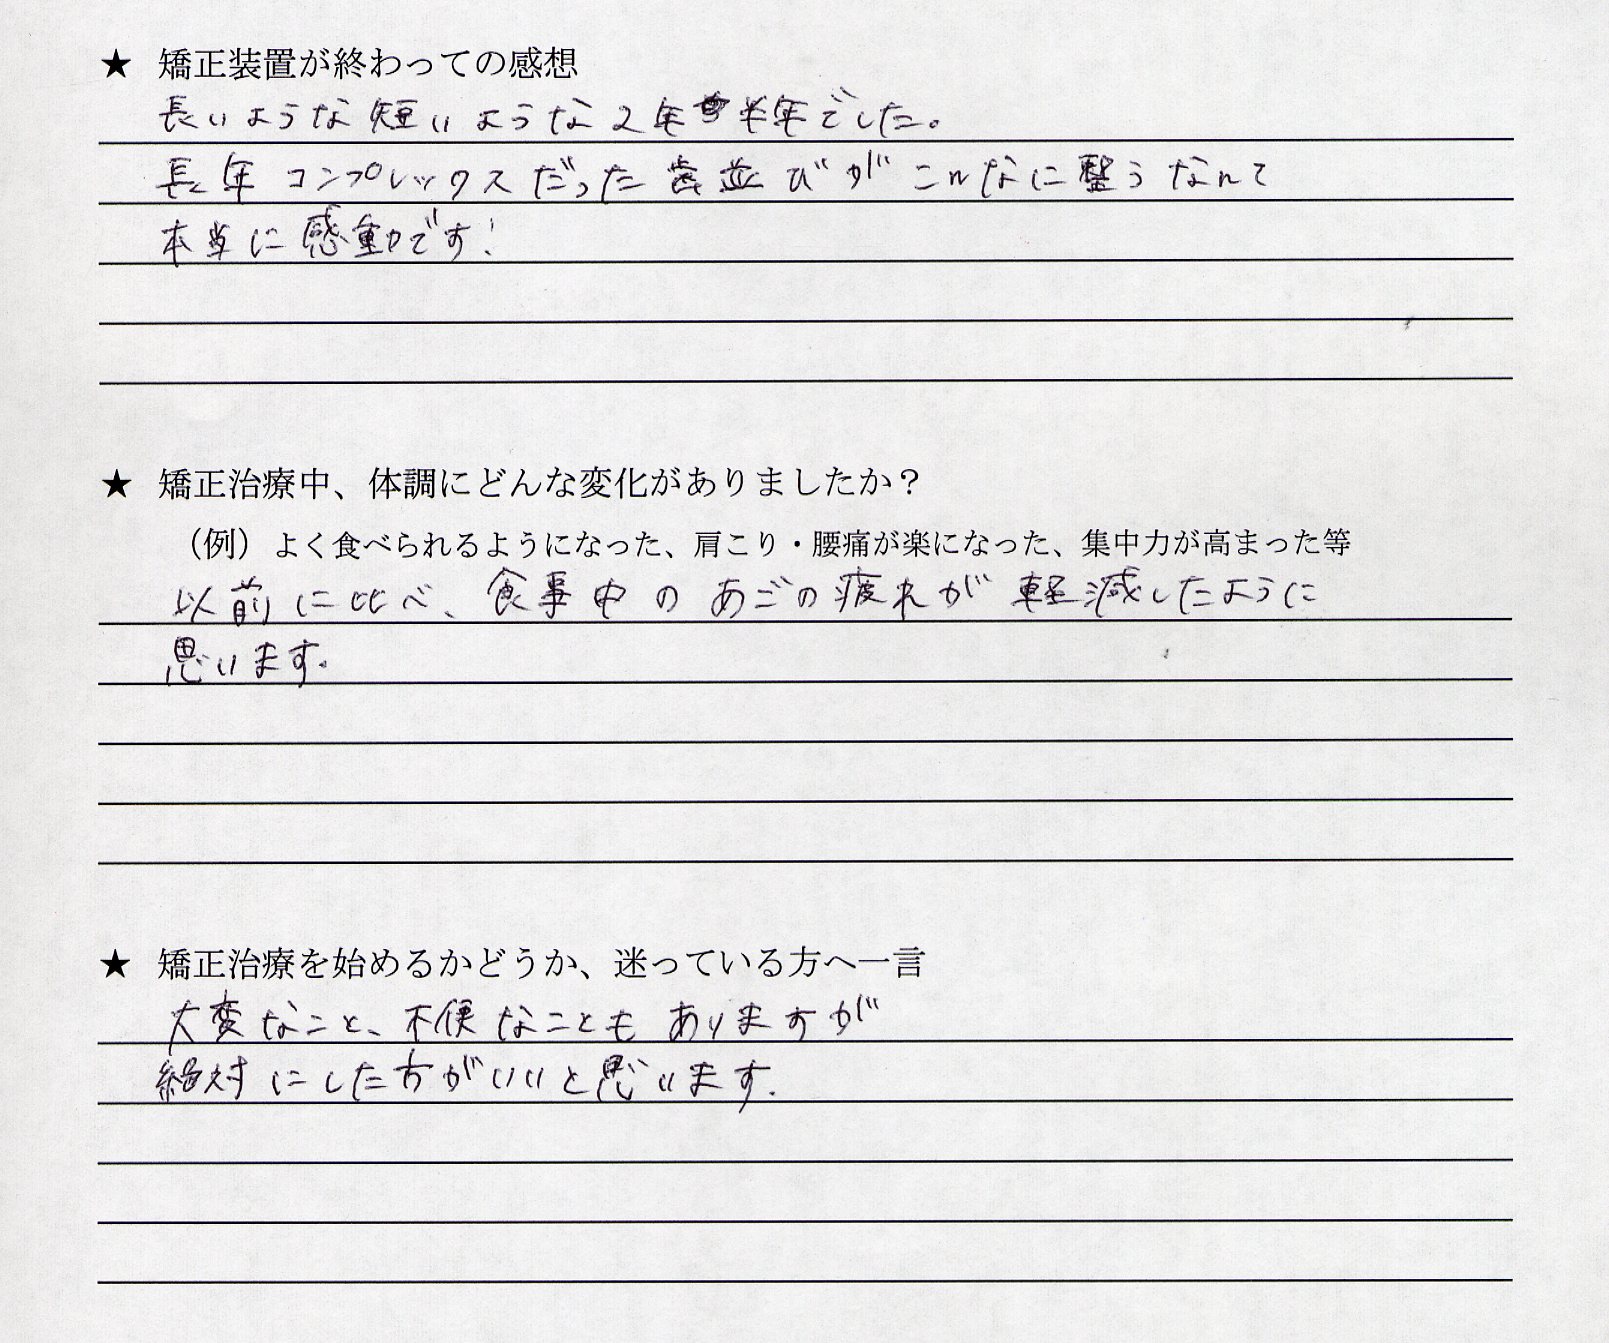 ★ 矯正装置が終わっての感想
長いような短いような2年半年でした。
長年コンプレックスだった歯並びがこんなに整うなんて
本当に感動です!
★ 矯正治療中、体調にどんな変化がありましたか？
（例）よく食べられるようになった、肩こり・腰痛が楽になった、集中力が高まった等
以前に比べ、食事中のあごの疲れが軽減したように
思います。
★ 矯正治療を始めるかどうか、迷っている方へ一言
大変なこと、不便なこともありますが
絶対にした方がいいと思います。